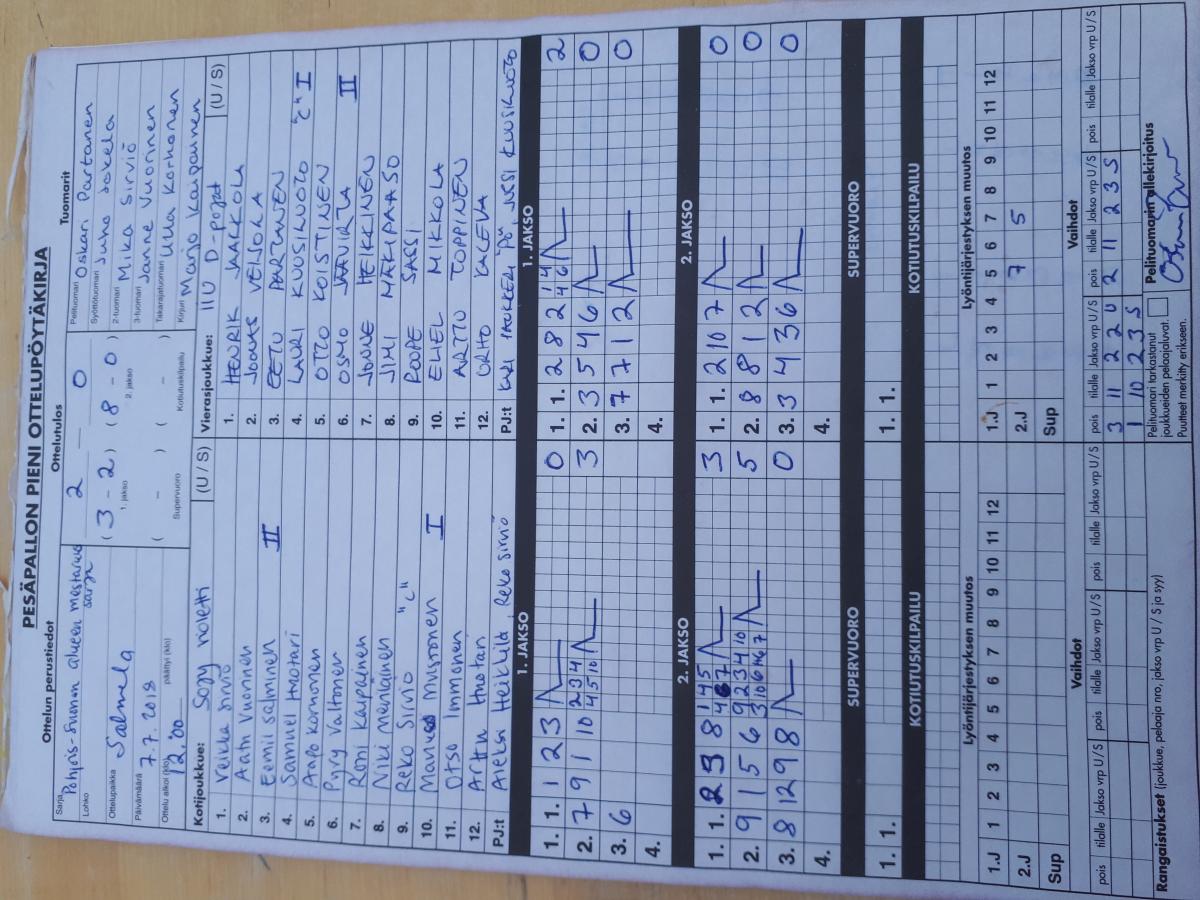 PESÄPALLON PIENI OTTELUPÖYTÄKIRJA
Ottelun perustiedot
Sarja Pohjois-Suomen alueen mestaruus
sarja
Lohko
Ottelupaikka Salmela
Päivämäärä 7.7.2018
Ottelu alkoi (klo) 12.00 päättyi (klo)
Ottelutulos
2 0
( 3 - 2 ) ( 8 - 0 )
1. jakso 2. jakso
( - ) ( - )
Supervuoro Kotiutuskilpailu
Tuomarit
Pelituomari Oskari Partanen
Syöttötuomari Juha Jokela
2-tuomari Mika Sirviö
3-tuomari Janne Vuorinen
Takarajatuomari Ukka Korhonen
Kirjuri Marjo Kaipainen
Kotijoukkue: Sopy violetti (U / S)
1. Veikka Sirviö
2. Aatu Vuorinen
3. Eemil Salminen II
4. Samuel Huotari
5. Aapo Korhonen
6. Pyry Valtonen
7. Roni Kaipainen
8. Niki
9. Reko Sirviö "C"
10. Mustonen I
11. Otso Immonen
12. Arttu Huotari
PJ:t Aleksi Heikkilä, Reko Sirviö
Vierasjoukkue: IIU D-pojat (U / S)
1. HENRIK JAAKKOLA
2. JOOANS VEIJOLA
3. EETU PARTANEN
4. LAURI KUUSIKUOTO "C" I
5. OTTO KOISTINEN
6. OSMO II
7. JONNE HEIKKINEN
8. JIMI MÄKIPAASO
9. ROOPE SASSI
10. ELIEL MIKKOLA
11. ARTTU TOPPINEN
12. URHO KALEVA
PJ:t JUSSI KUUSIKUOTO
1. JAKSO
1. 1. 1 2 3 0
2. 7 9 1 10 2 3 4 4 5 10 3
3. 6
4.
1. JAKSO
1. 1. 2 8 2 4 6 1 4 2
2. 3 5 4 6 0
3. 7 7 1 2 0
4.
2. JAKSO
1. 1. 2 3 8 1 4 5 4 6 7 3
2. 9 1 5 6 9 2 3 4 10 3 10 6 4 6 7 5
3. 8 12 9 8 0
4.
2. JAKSO
1. 1. 2 10 7 0
2. 8 8 1 2 0
3. 3 4 3 6 0
4.
SUPERVUORO
1. 1.
SUPERVUORO
1. 1.
KOTIUTUSKILPAILU
KOTIUTUSKILPAILU
Lyöntijärjestyksen muutos
1.J 1 2 3 4 5 6 7 8 9 10 11 12
2.J
Sup
Lyöntijärjestyksen muutos
1.J 1 2 3 4 5 6 7 8 9 10 11 12
2.J 7 5
Sup
Vaihdot
pois tilalle Jakso vrp U/S pois tilalle Jakso vrp U/S pois tilalle Jakso vrp U/S
Vaihdot
pois tilalle Jakso vrp U/S pois tilalle Jakso vrp U/S pois tilalle Jakso vrp U/S
3 11 2 2 U 2 11 2 3 S
1 10 2 3 S
Rangaistukset (joukkue, pelaaja nro, jakso vrp U / S ja syy)
Pelituomari tarkastanut
joukkueiden pelaajaluvat.
Puutteet merkitty erikseen.
Pelituomarin allekirjoitus